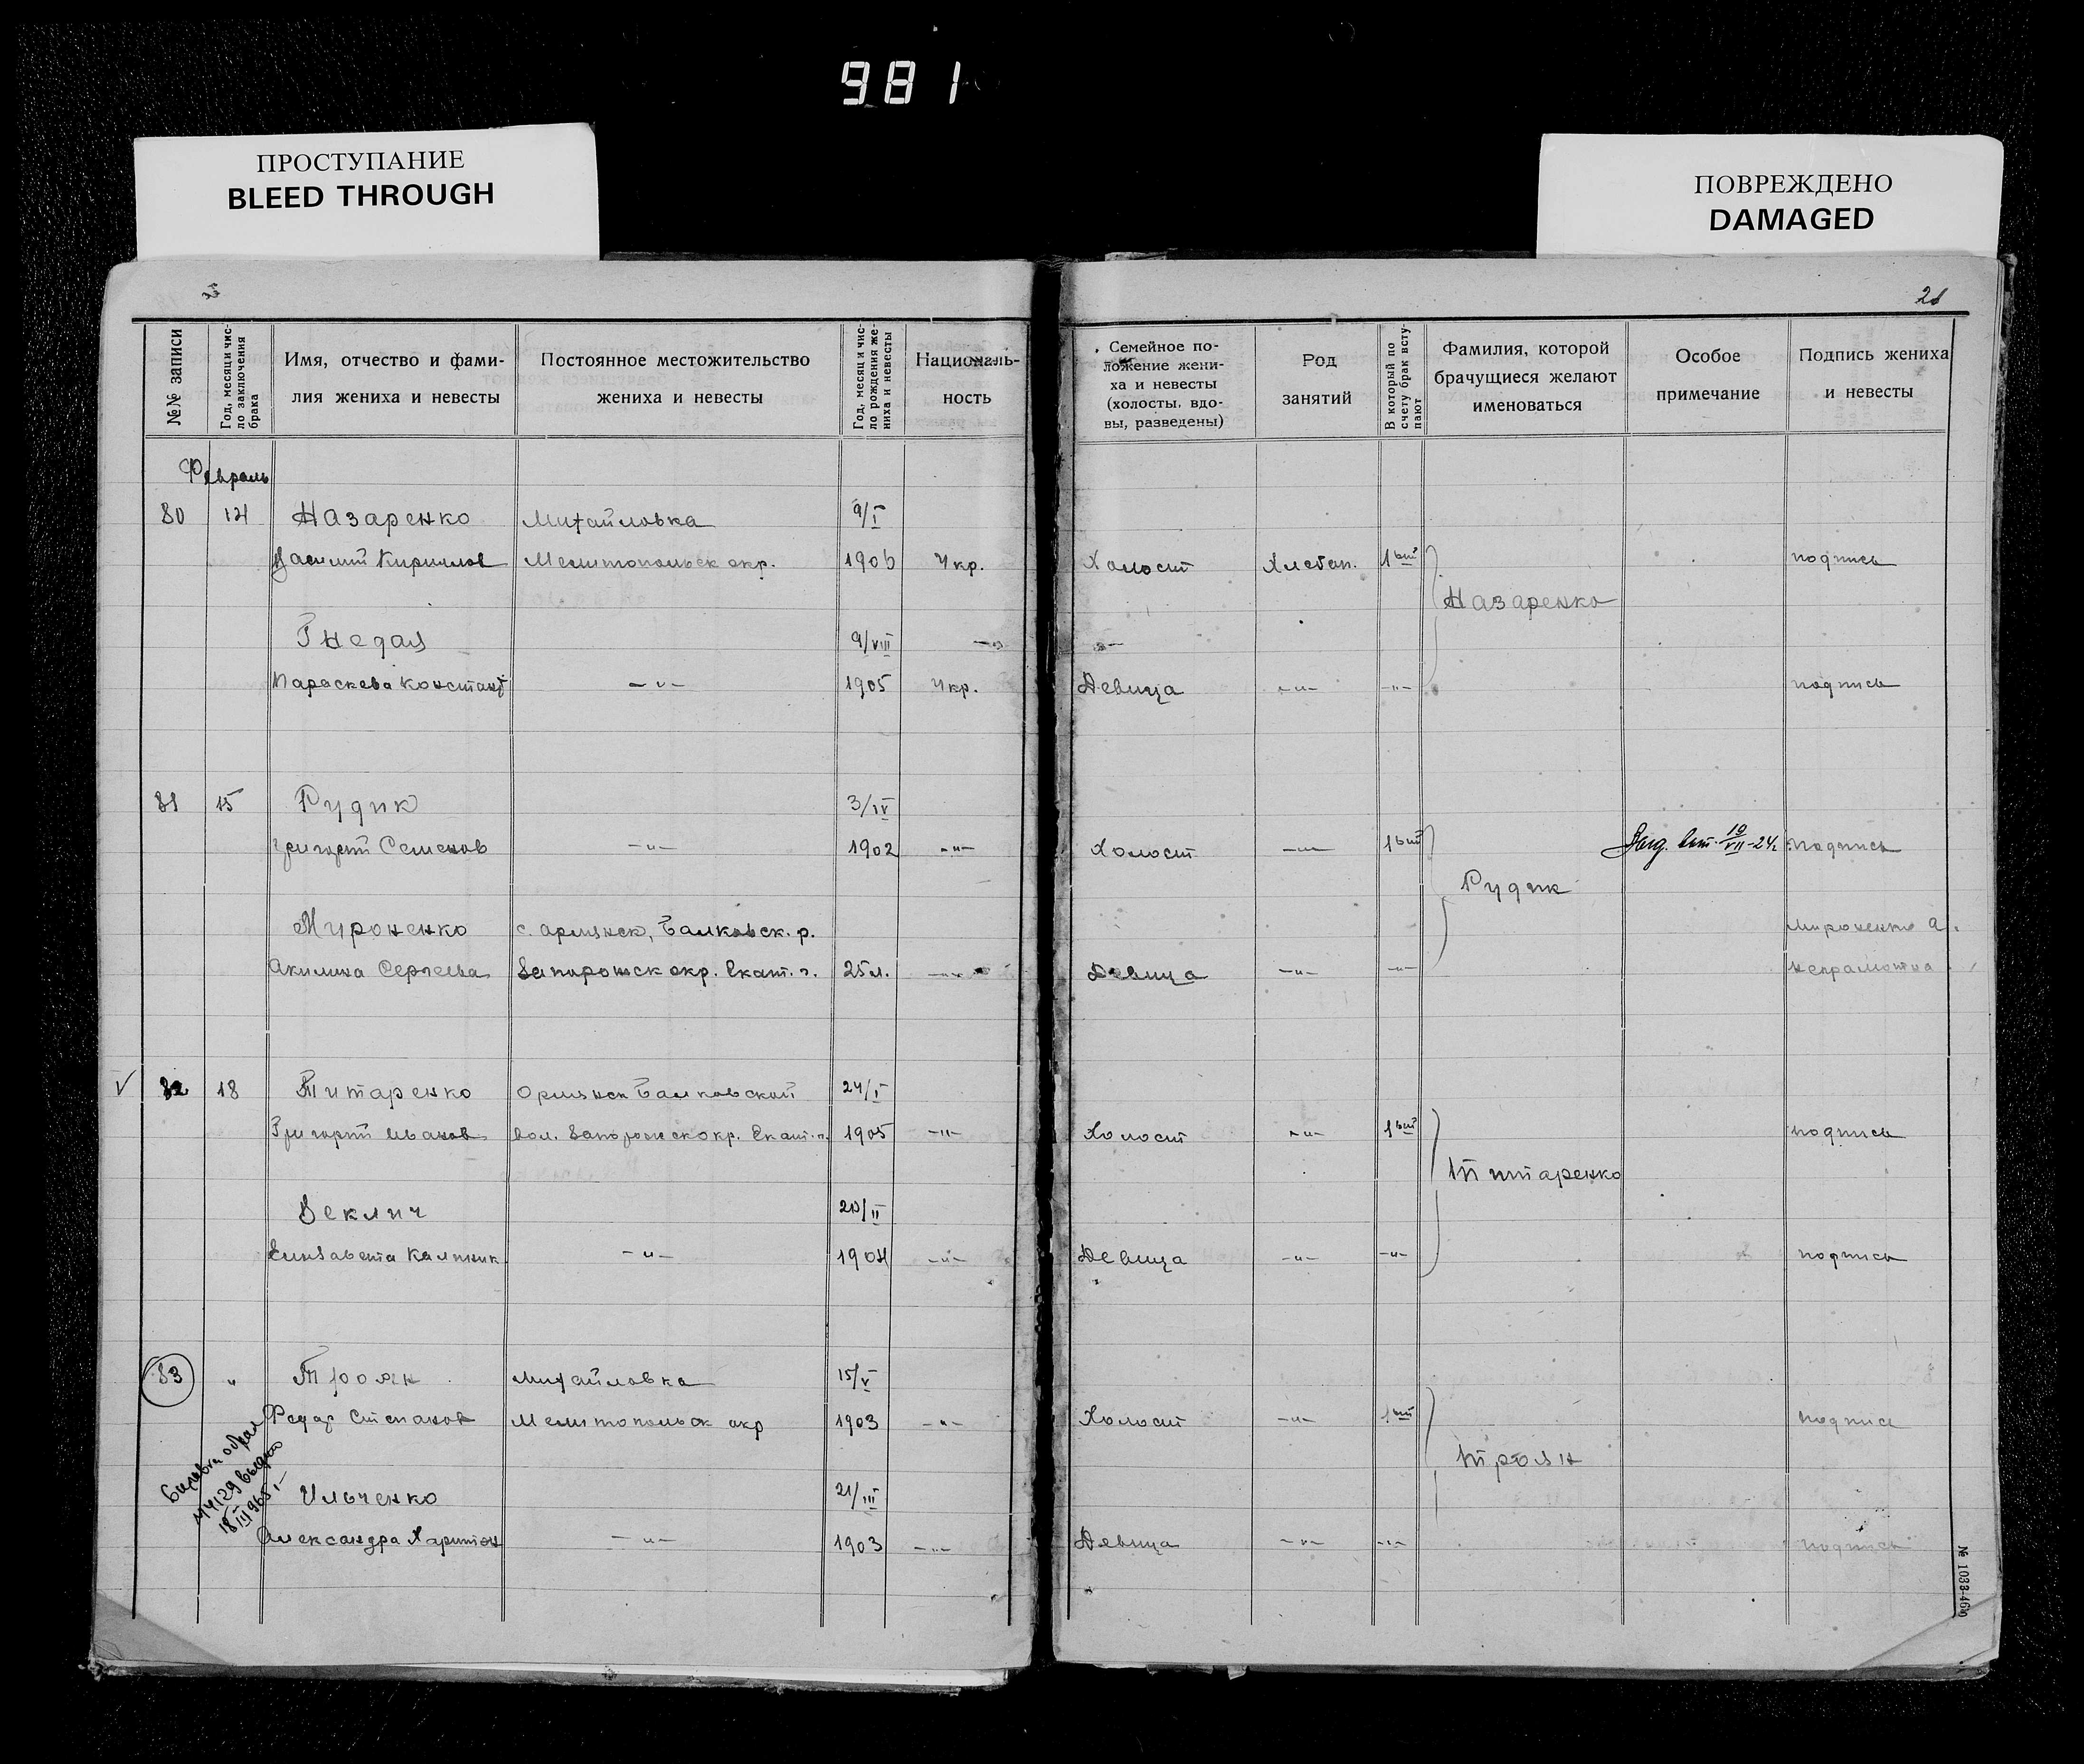 981
ПРОСТУПАНИЕ
BLEED THROUGH
ПОВРЕЖДЕНО
DAMAGED
№№ записи
Год, месяц и чис-
ло заключения
брака
Имя, отчество и фами-
лия жениха и невесты
Постоянное местожительство
жениха и невесты
Год, месяц и чис-
ло рождения же-
ниха и невесты
Националь-
ность
Семейное по-
ложение жени-
ха и невесты
(холосты, вдо-
вы, разведены)
Род
занятий
В который по
счету брак всту-
пают
Фамилия, которой
брачущиеся желают
именоваться
Особое
примечание
Подпись жениха
и невесты
Февраль
80 14 Назаренко Михайловка 9/I
Василий Кириллов Мелитопольск окр. 1906 Укр. Холост Хлебоп. 1ый подпись
Назаренко
Гнедая 9/VIII —"—
Параскева Констант —"— 1905 Укр. Девица —"— —"— подпись
81 15 Рудик 3/IV
Григорий Семенов —"— 1902 —"— Холост —"— 1ый Выд. вып. 19/VII-24г. подпись
Рудик
Мироненко с. Орлянск, Балковск. р. Мироненко А.
Акилина Сергеева Запорожск окр. Екат. г. 25 л. —"— Девица —"— —"— неграмотна
V 82 18 Титаренко Орлянск Балковской 24/I
Григорий Иванов вол. Запорожск окр. Екат. г. 1905 —"— Холост —"— 1ый подпись
Титаренко
Веклич /II
Елизавета Калиник. —"— 1904 —"— Девица —"— —"— подпись
83 " Троян Михайловка 15/V
Федор Степанов Мелитопольск окр 1903 —"— Холост —"— 1ый подпись
Троян
18/III 1965 г.
Ильченко 21/III
Александра Харитон —"— 1903 —"— Девица —"— —"— подпись